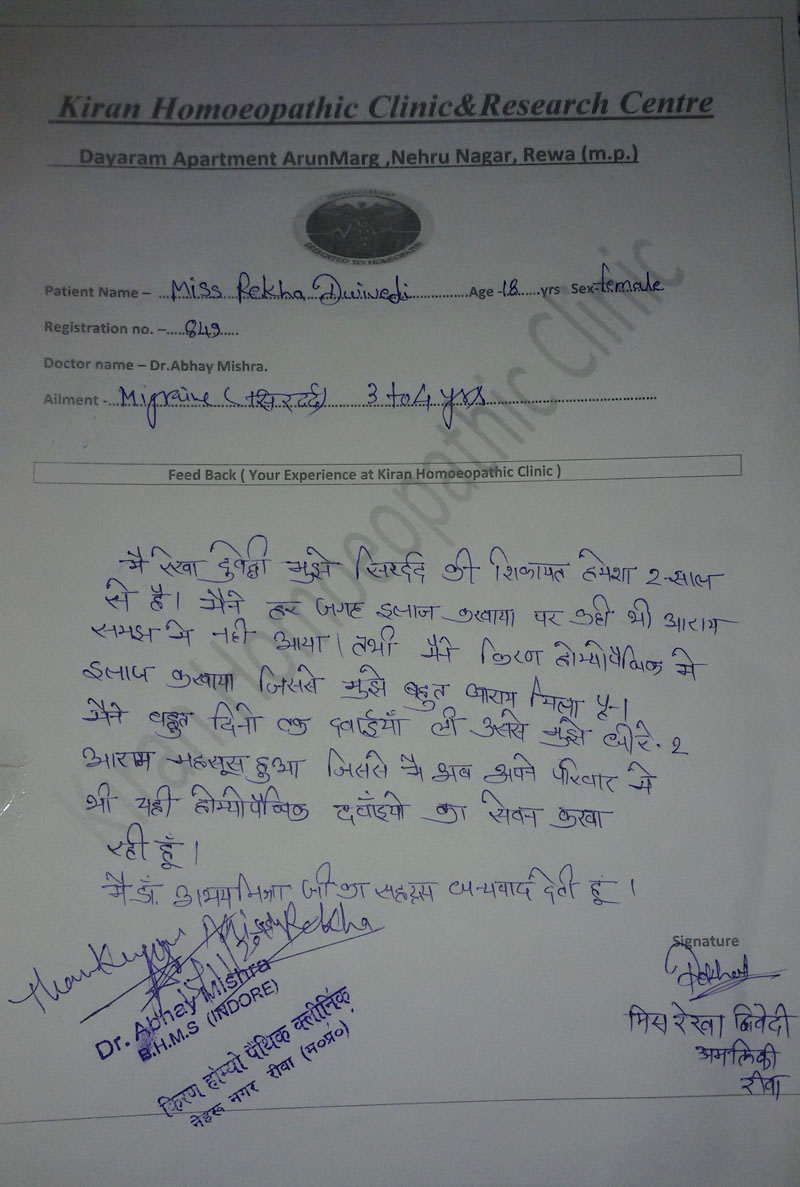 Kiran Homoeopathic Clinic&Research Centre
Dayaram Apartment ArunMarg ,Nehru Nagar, Rewa (m.p.)
DEDICATED TO HOMOEOPATHY
Patient Name – Miss Rekha Dwivedi Age -18 yrs Sex- female
Registration no. – 849
Doctor name – Dr.Abhay Mishra.
Ailment - Migraine (सिरदर्द) 3 to 4 yrs
Feed Back ( Your Experience at Kiran Homoeopathic Clinic )
मै रेखा द्विवेदी मुझे सिरदर्द की शिकायत हमेशा 2-साल
से है। मैने हर जगह इलाज करवाया पर कही भी आराम
समझ मे नही आया। तभी मैने किरण होम्योपैथिक मे
इलाज करवाया जिससे मुझे बहुत आराम मिला
मैने बहुत दिनो तक दवाईयाँ ली उससे मुझे धीरे-2
आराम महसूस हुआ जिससे मै अब अपने परिवार मे
भी यही होम्योपैथिक दवाँइयो का सेवन करवा
रही हूँ।
मै डॉ. अभय मिश्रा जी का सहृदय धन्यवाद देती हूं।
Thank you Miss Rekha
Signature
Rekha
Dr. Abhay Mishra
B.H.M.S (INDORE)
किरण होम्यो पैथिक क्लीनिक
नेहरू नगर रीवा (म०प्र०)
मिस रेखा द्विवेदी
अमलिकी
रीवा
Kiran Homoeopathic Clinic